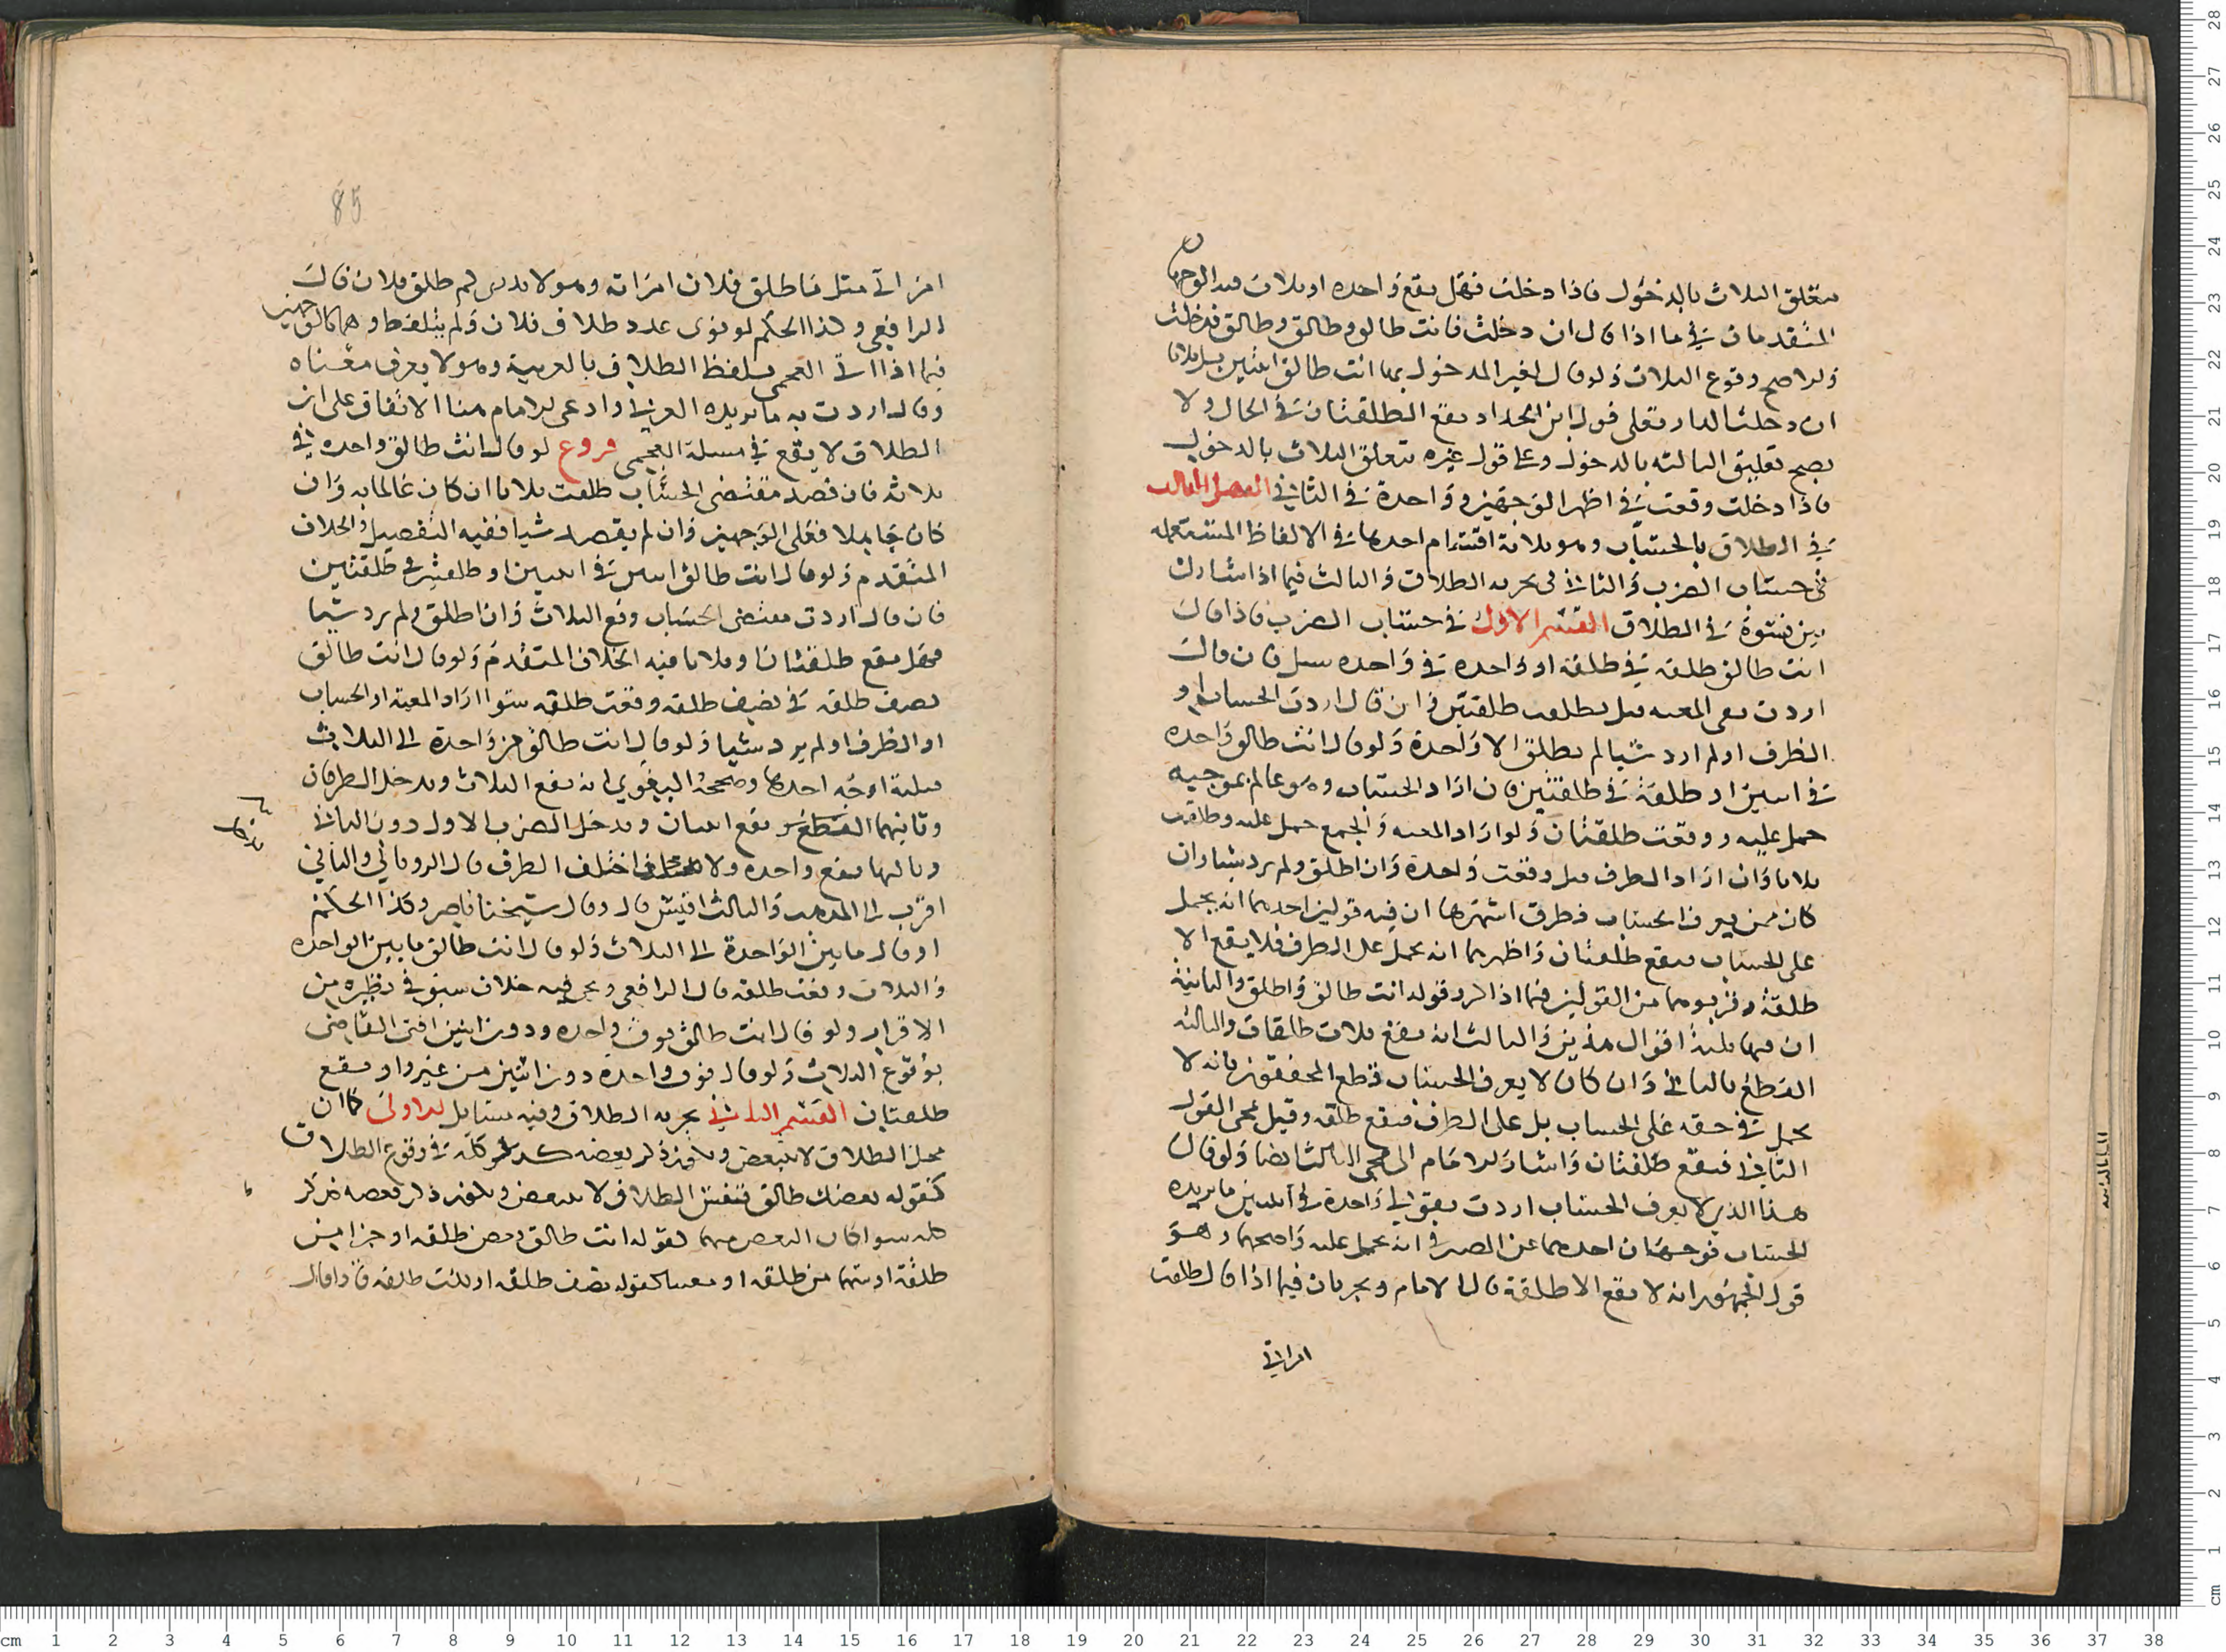 متعلق الثلاث بالدخول فاذا دخلت فهل يقع واحدة او ثلاث فيه الوجهان
المتقدمان في ما اذا قال ان دخلت فانت طالق وطالق وطالق فدخلت
والاصح وقوع الثلاث ولو قال لغير المدخول بها انت طالق اثنتين بل ثلاثا
ان دخلت الدار فعلى قول ابن الحداد يقع الطلقتان في الحال ولا
يصح تعليق الثالثه بالدخول وعلى قول غيره يتعلق الثلاث بالدخول
فاذا دخلت وقعت في اظهر الوجهين وواحدة في الثاني الفصل الثالث
في الطلاق بالحساب وهو ثلاثة اقسام احدها في الالفاظ المستعمله
في حساب الضرب والثاني في تجزيه الطلاق والثالث فيما اذا شارك
بين نسوة في الطلاق القسم الاول في حساب الضرب فاذا قال
انت طالق طلقة في طلقة او واحدة في واحده سئل فان قال
اردت بفي المعيه قبل وطلقت طلقتين وان قال اردت الحساب او
الظرف او لم ارد شيا لم تطلق الا واحدة ولو قال انت طالق واحده
في اثنتين او طلقة في طلقتين فان اراد الحساب وهو عالم بموجبه
حمل عليه ووقعت طلقتان ولو اراد المعيه والجمع حمل عليه وطلقت
ثلاثا وان اراد الظرف قبل وقعت واحدة وان اطلق ولم يرد شيا وان
كان ممن يعرف الحساب فطرق اشهرها ان فيه قولين احدهما انه يحمل
على الحساب فيقع طلقتان واظهرهما انه يحمل على الظرف فلا يقع الا
طلقة وقربوهما من القولين فيما اذا كرر قوله انت طالق واطلق والثانية
ان فيها ثلثة اقوال هذين والثالث انه يقع ثلاث طلقات والثالثه
القطع بالثاني وان كان لا يعرف الحساب قطع المحققون بانه لا
يحمل في حقه على الحساب بل على الظرف فيقع طلقه وقيل يجي القول
الثاني فيقع طلقتان واشار الامام الى مجي الثالث ايضا ولو قال
هذا الذي لا يعرف الحساب اردت بقولي واحدة في اثنتين ما يريده
الحساب فوجهان احدهما عن الصيرفي انه يحمل عليه واصحهما وهو
قول الجمهور انه لا يقع الا طلقة قال الامام ويجريان فيما اذا قال طلقت
امراتي
85
امراتي مثل ما طلق فلان امراته وهو لا يدري كم طلق فلان قال
الرافعي وكذا الحكم لو نوى عدد طلاق فلان ولم يتلفظ وهما كالوجهين
فيما اذا اتى العجمي بلفظ الطلاق بالعربية وهو لا يعرف معناه
وقال اردت به ما يريده العربي وادعى الامام هنا الاتفاق على ان
الطلاق لا يقع في مسلة العجمي فروع لو قال انت طالق واحده في
ثلاثه فان قصد مقتضى الحساب طلقت ثلاثا ان كان عالما به وان
كان جاهلا فعلى الوجهين وان لم يقصد شيا ففيه التفصيل والخلاف
المتقدم ولو قال انت طالق اثنتين في اثنتين او طلقتين في طلقتين
فان قال اردت مقتضى الحساب وقع الثلاث وان اطلق ولم يرد شيا
فهل يقع طلقتان او ثلاثا فيه الخلاف المتقدم ولو قال انت طالق
نصف طلقه في نصف طلقه وقعت طلقه سوا اراد المعية او الحساب
او الظرف او لم يرد شيا ولو قال انت طالق من واحدة الى الثلاث
فثلثة اوجه احدها وصححه البغوي انه يقع الثلاث ويدخل الطرفان
وثانيهما يقع اثنتان ويدخل الطرف الاول دون الثاني
وثالثها يقع واحده ولا اختلف الطرف قال الروياني والثاني
اقرب الى المذهب والثالث اقيس قال وقال شيخنا ناصر وكذا الحكم
او قال ما بين الواحدة الى الثلاث ولو قال انت طالق ما بين الواحده
والثلاث وقعت طلقه قال الرافعي ويجي فيه خلاف سبق في نظيره من
الاقرار ولو قال انت طالق فوق واحده ودون اثنتين افتى القاضي
بوقوع الثلاث ولو قال فوق واحدة دون اثنتين من غير واو يقع
طلقتان القسم الثاني تجزيه الطلاق وفيه مسايل الاولى كما ان
محل الطلاق لا يتبعض ويكون ذكر بعضه كذكر كله في وقوع الطلاق
كقوله بعضك طالق فنفس الطلاق لا يتبعض ويكون ذكر بعضه كذكر
كله سوا كان البعض مبهما كقوله انت طالق بعض طلقه او جزا من
طلقة او سهما من طلقه او معينا كقوله نصف طلقه او ثلث طلقه فاذا قال